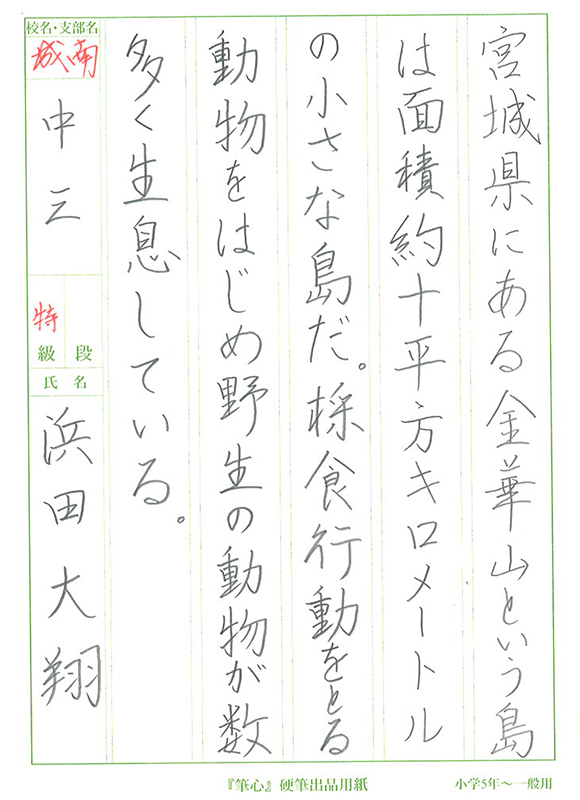 宮城県にある金華山という島
は面積約十平方キロメートル
の小さな島だ。採食行動をとる
動物をはじめ野生の動物が数
多く生息している。
校名・支部名
城南
中三
特
級 段
氏 名
浜田大翔
『筆心』硬筆出品用紙
小学5年～一般用